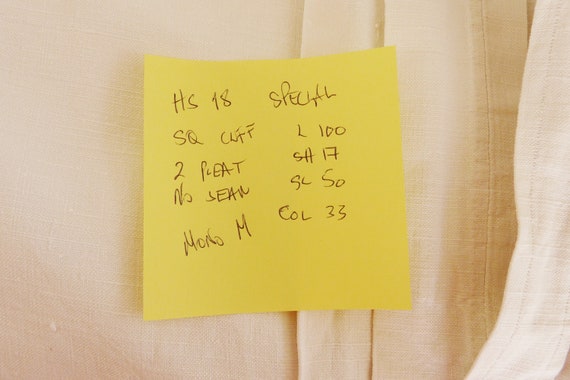 HS 18 SPECIAL
SQ CUFF L 100
2 PLEAT SH 17
NO SEAM SL 50
MONO M COL 33